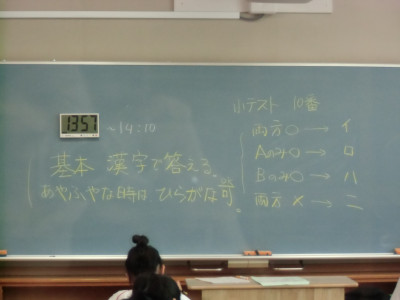 小テスト 10番
両方○→イ
Aのみ○→ロ
Bのみ○→ハ
両方×→ニ
13:57 ~14:10
基本 漢字で答える。
あやふやな時は ひらがな可。